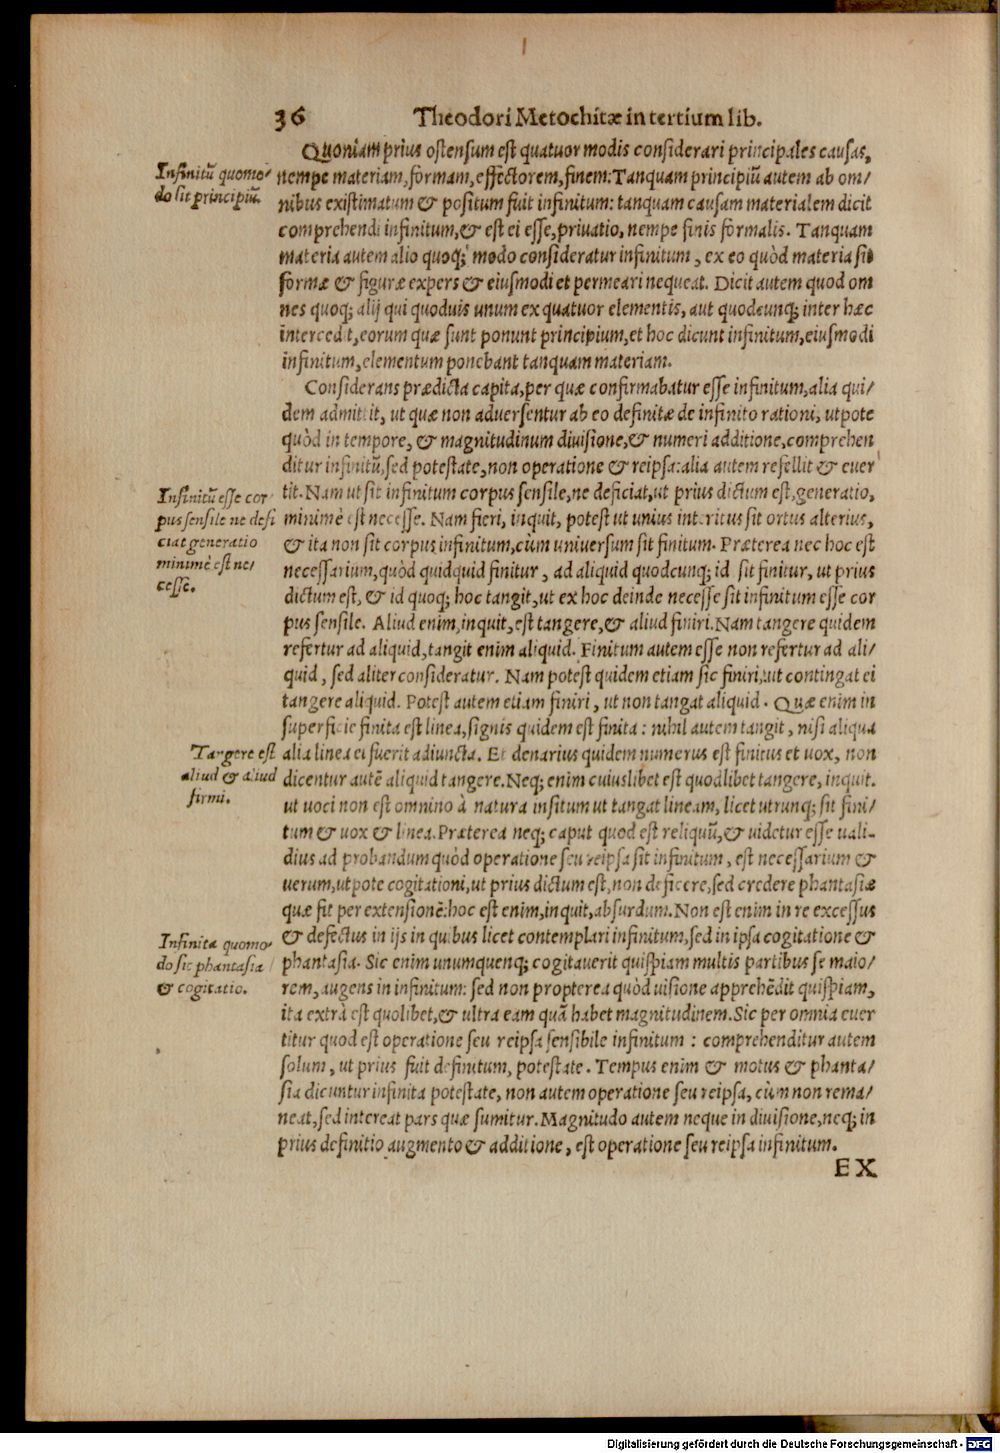 36 Theodori Metochitæ in tertium lib.
Quoniam prius ostensum est quatuor modis considerari principales causas,
Infinitũ quomo/
do sit principiũ.
nempe materiam, formam, effectorem, finem: Tanquam principiũ autem ab om/
nibus existimatum & positum fuit infinitum: tanquam causam materialem dicit
comprehendi infinitum, & est ei esse, priuatio, nempe finis formalis. Tanquam
materia autem alio quoq; modo consideratur infinitum, ex eo quòd materia sit
formæ & figuræ expers & eiusmodi et permeari nequeat. Dicit autem quod om
nes quoq; alij qui quoduis unum ex quatuor elementis, aut quodcunq; inter hæc
intercedit, eorum quæ sunt ponunt principium, et hoc dicunt infinitum, eiusmodi
infinitum, elementum ponebant tanquam materiam.
Considerans prædicta capita, per quæ confirmabatur esse infinitum, alia qui/
dem admittit, ut quæ non aduersentur ab eo definitæ de infinito rationi, utpote
quòd in tempore, & magnitudinum diuisione, & numeri additione, comprehen
ditur infinitũ, sed potestate, non operatione & reipsa: alia autem refellit & euer
Infinitũ esse cor
pus sensile ne defi
ciat generatio
minimè est ne/
cesse.
tit. Nam ut sit infinitum corpus sensile, ne deficiat, ut prius dictum est, generatio,
minimè est necesse. Nam fieri, inquit, potest ut unius interitus sit ortus alterius,
& ita non sit corpus infinitum, cùm uniuersum sit finitum. Præterea nec hoc est
necessarium, quòd quidquid finitur, ad aliquid quodcunq; id sit finitur, ut prius
dictum est, & id quoq; hoc tangit, ut ex hoc deinde necesse sit infinitum esse cor
pus sensile. Aliud enim, inquit, est tangere, & aliud finiri. Nam tangere quidem
refertur ad aliquid, tangit enim aliquid. Finitum autem esse non refertur ad ali/
quid, sed aliter consideratur. Nam potest quidem etiam sic finiri, ut contingat ei
tangere aliquid. Potest autem etiam finiri, ut non tangat aliquid. Quæ enim in
superficie finita est linea, signis quidem est finita: nihil autem tangit, nisi aliqua
Tangere est
aliud & aliud
firmi.
alia linea ei fuerit adiuncta. Et denarius quidem numerus est finitus et uox, non
dicentur autẽ aliquid tangere. Neq; enim cuiuslibet est quodlibet tangere, inquit.
ut uoci non est omnino à natura insitum ut tangat lineam, licet utrunq; sit fini/
tum & uox & linea. Præterea neq; caput quod est reliquũ, & uidetur esse uali-
dius ad probandum quòd operatione seu reipsa sit infinitum, est necessarium &
uerum, utpote cogitationi, ut prius dictum est, non deficere, sed credere phantasiæ
quæ fit per extensionẽ: hoc est enim, inquit, absurdum. Non est enim in re excessus
Infinita quomo/
do sic phantasia
& cogitatio.
& defectus in ijs in quibus licet contemplari infinitum, sed in ipsa cogitatione &
phantasia. Sic enim unumquenq; cogitauerit quispiam multis partibus se maio/
rem, augens in infinitum: sed non propterea quòd uisione apprehẽdit quispiam,
ita extrà est quolibet, & ultra eam quã habet magnitudinem. Sic per omnia euer
titur quod est operatione seu reipsa sensibile infinitum: comprehenditur autem
solum, ut prius fuit definitum, potestate. Tempus enim & motus & phanta/
sia dicuntur infinita potestate, non autem operatione seu reipsa, cùm non rema/
neat, sed intereat pars quæ sumitur. Magnitudo autem neque in diuisione, neq; in
prius definitio augmento & additione, est operatione seu reipsa infinitum.
EX
Digitalisierung gefördert durch die Deutsche Forschungsgemeinschaft - DFG